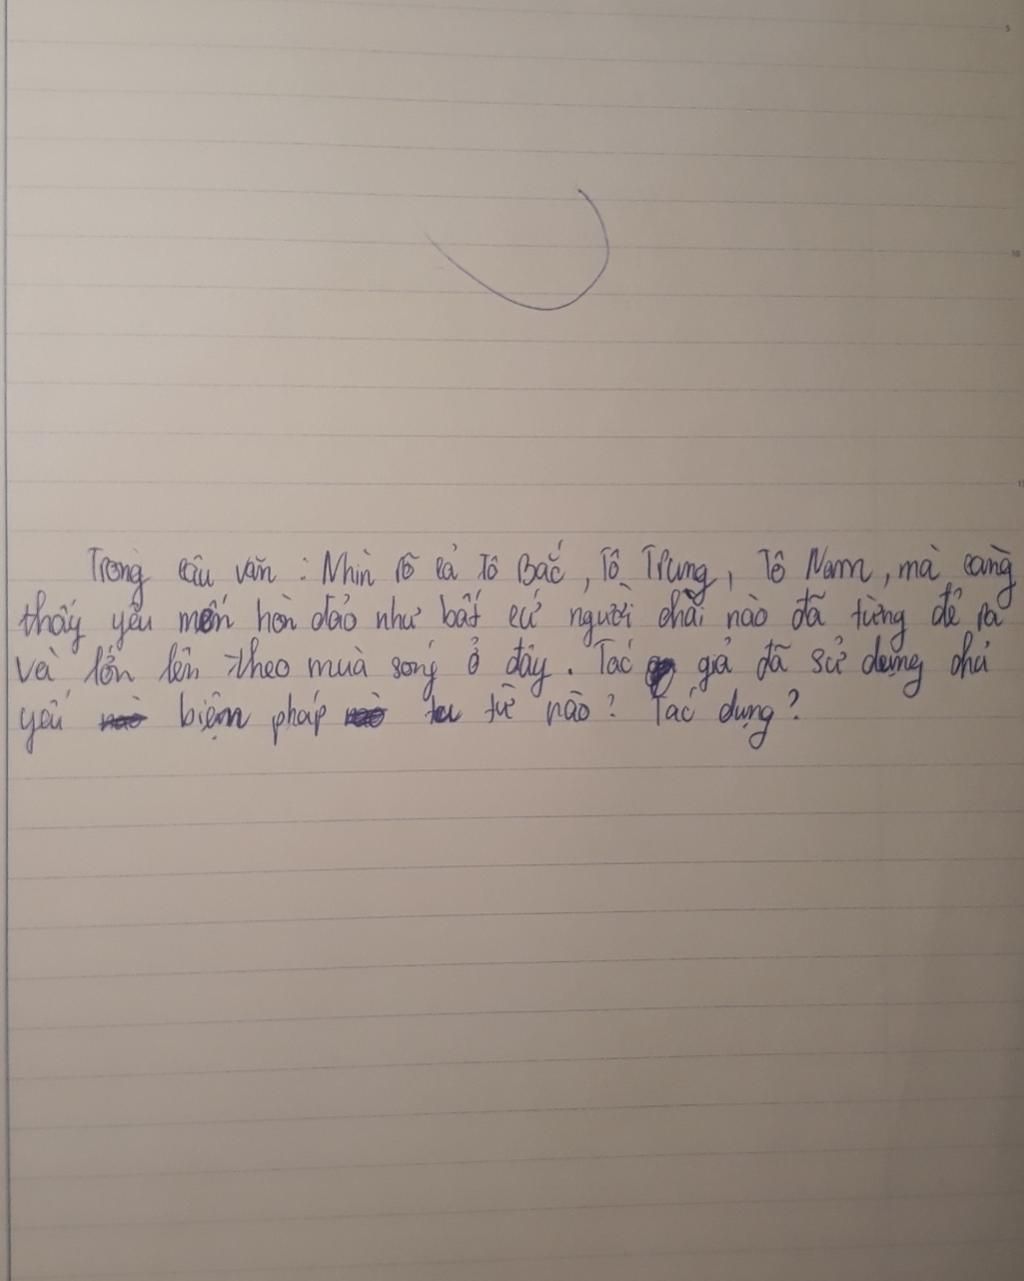 Trong câu văn : Nhìn rõ cả Tô Bắc, Tô Trung, Tô Nam, mà càng
thấy yêu mến hòn đảo như bất cứ người chài nào đã từng đẻ ra
và lớn lên theo mùa sóng ở đây. Tác giả đã sử dụng chủ
yếu biện pháp tu từ nào? Tác dụng?